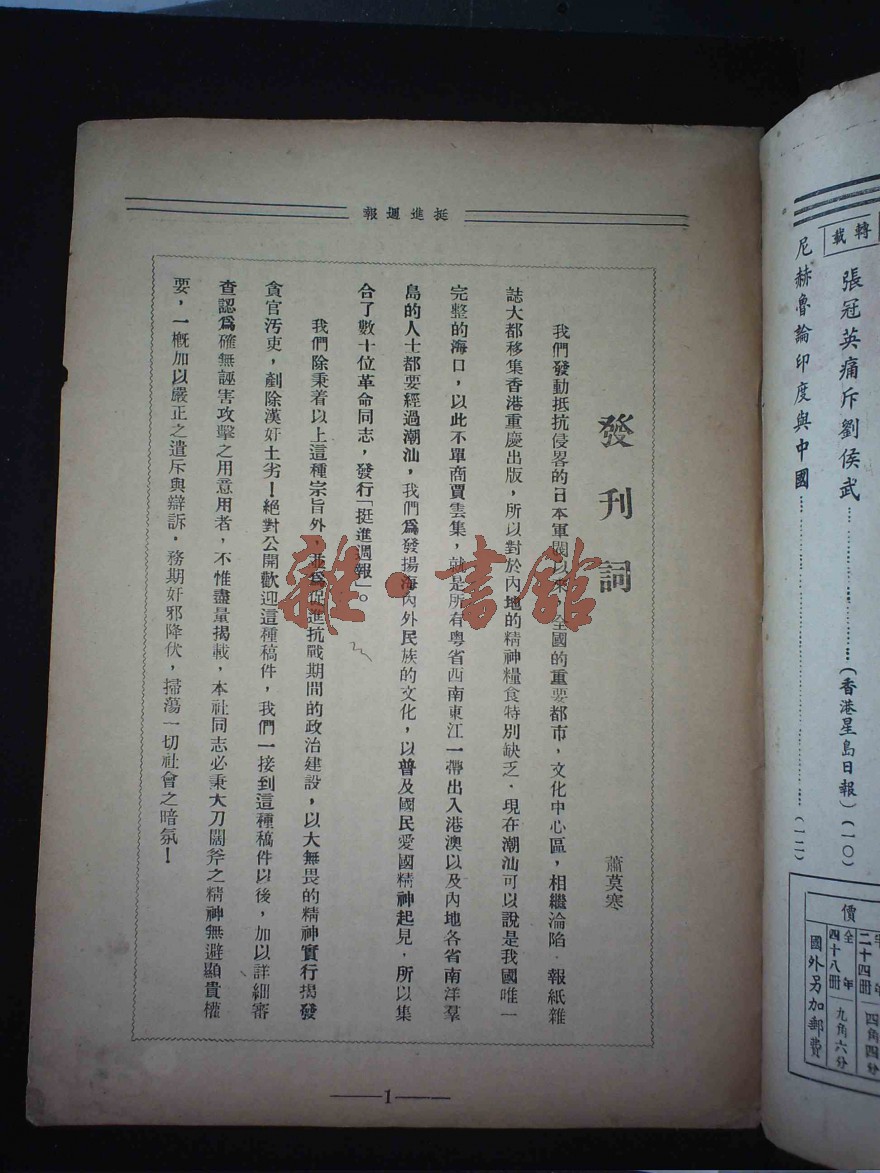 挺進週報
發刊詞
蕭莫寒
我們發動抵抗侵畧的日本軍閥以來，全國的重要都市，文化中心區，相繼淪陷．報紙雜
誌大都移集香港重慶出版，所以對於內地的精神糧食特別缺乏．現在潮汕可以說是我國唯一
完整的海口，以此不單商賈雲集，就是所有粵省西南東江一帶出入港澳以及內地各省南洋羣
島的人士都要經過潮汕，我們爲發揚海內外民族的文化，以普及國民愛國精神起見，所以集
合了數十位革命同志，發行「挺進週報」。
我們除秉着以上這種宗旨外，並爲促進抗戰期間的政治建設，以大無畏的精神實行揭發
貪官汚吏，剷除漢奸土劣！絕對公開歡迎這種稿件，我們一接到這種稿件以後，加以詳細審
查認爲確無誣害攻擊之用意用者，不惟盡量揭載，本社同志必秉大刀闊斧之精神無避顯貴權
要，一概加以嚴正之遣斥與辯訴．務期奸邪降伏，掃蕩一切社會之暗氛！
1
雜·書館
轉載
張冠英痛斥劉侯武……（香港星島日報）（一〇）
尼赫魯論印度與中國……（一二）
價
年
二十四冊
四角四分
全年
四十八冊
九角六分
國外另加郵費